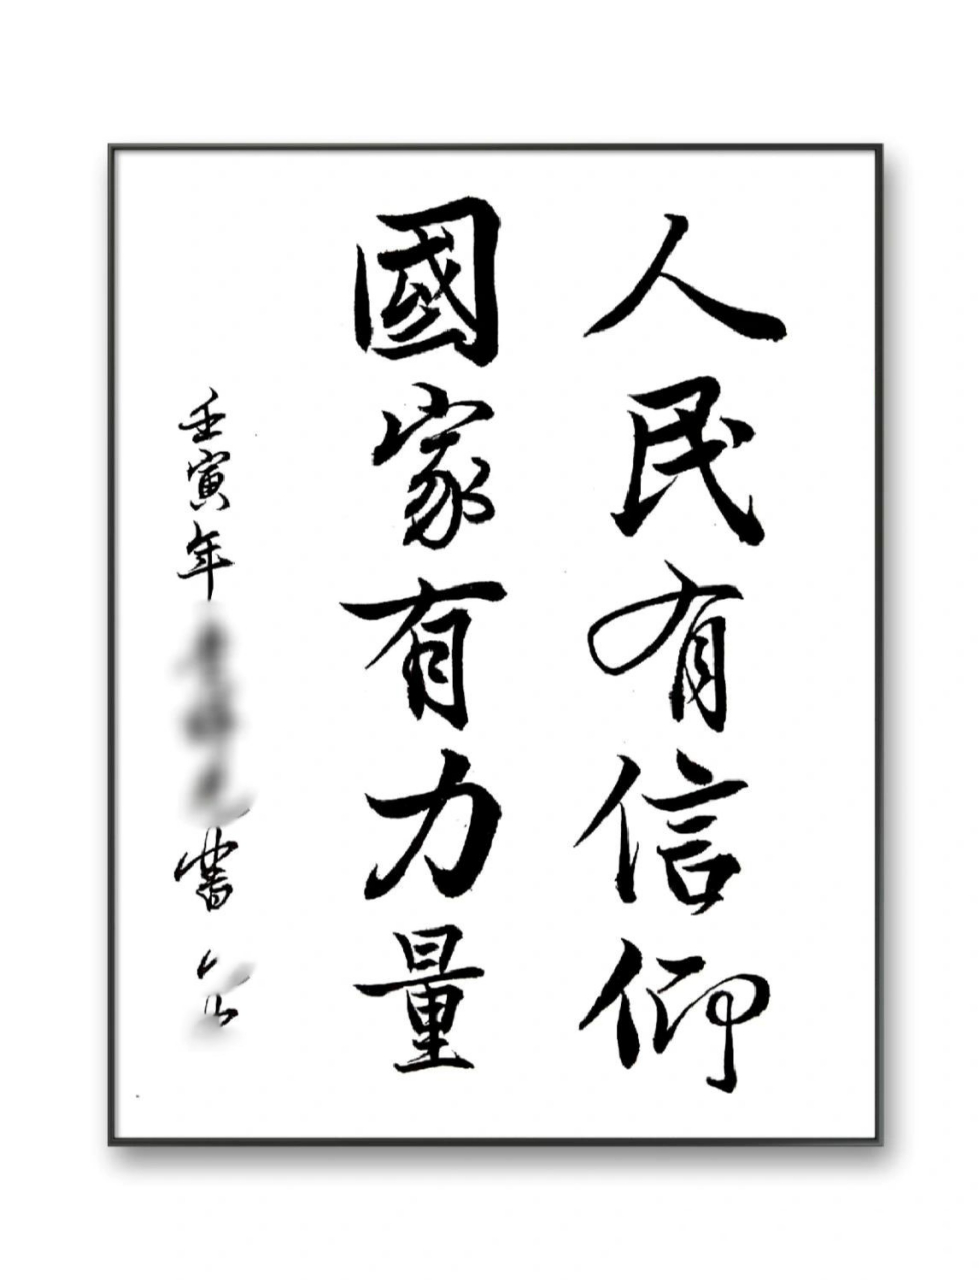 人民有信仰
國家有力量
壬寅年
書